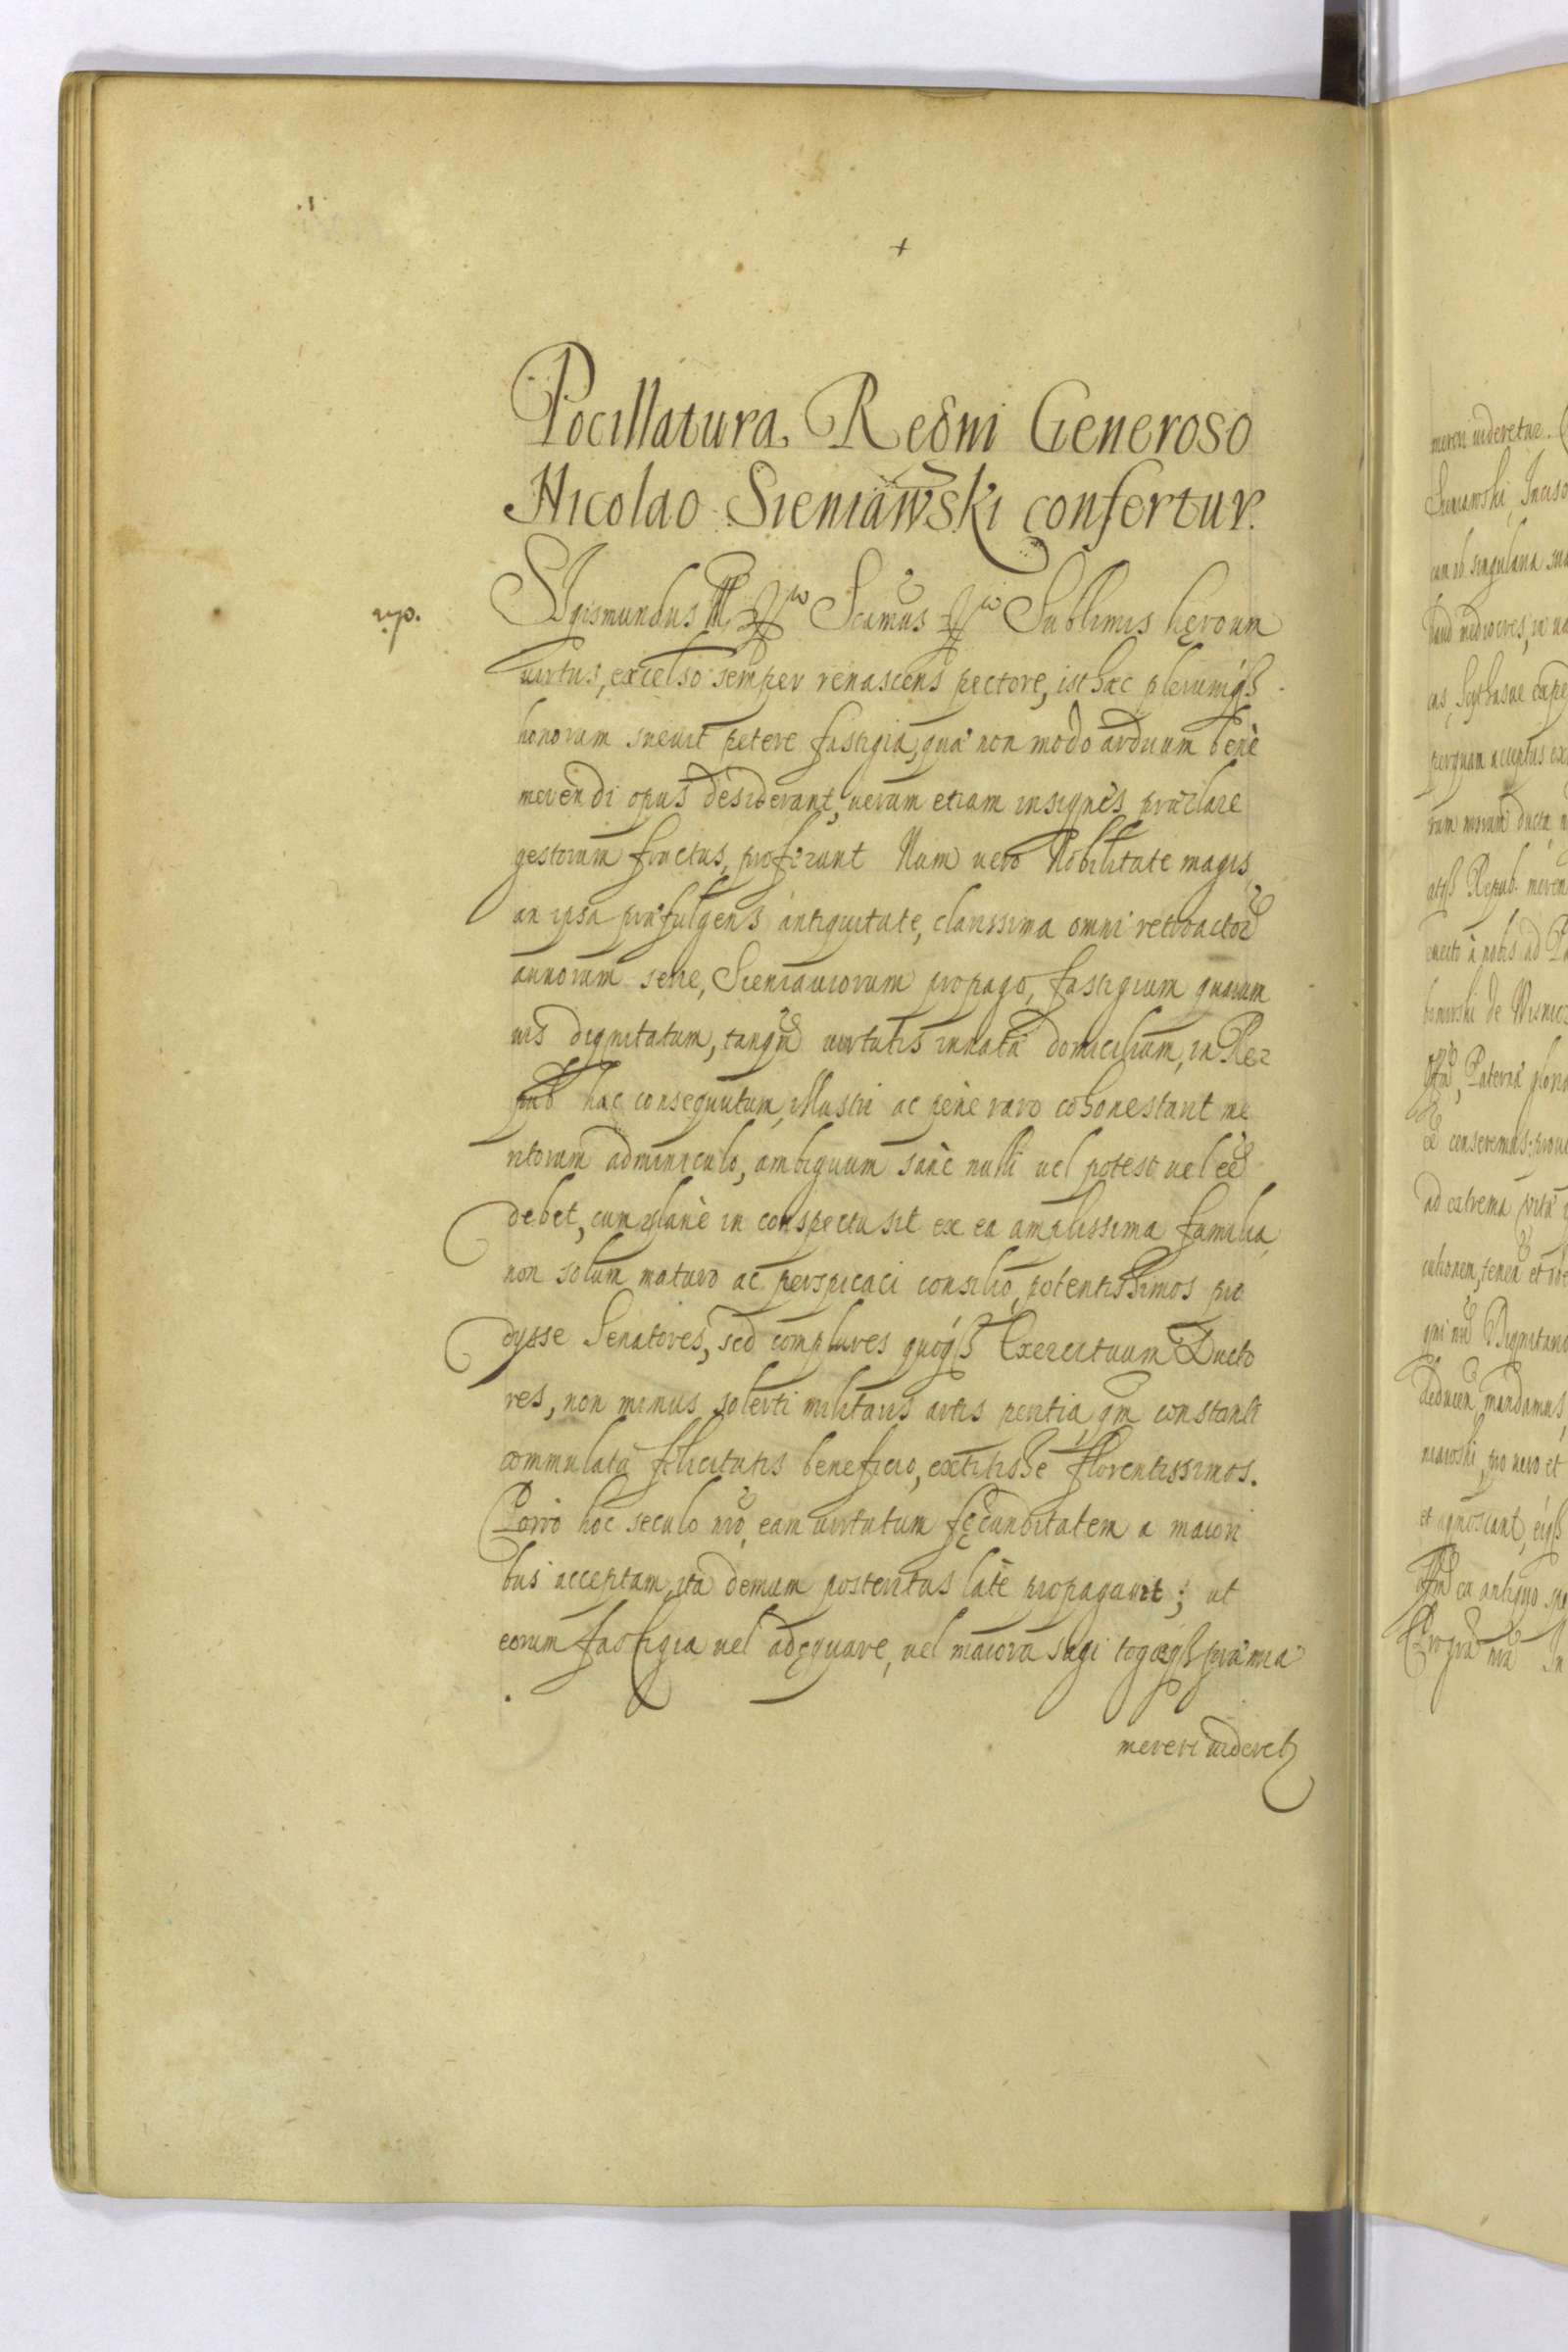 Pocillatura Regni Generoso
Nicolao Sieniawski confertur.
Sigismundus III Scimus Sublimis heroum
uirtus, excelso semper renascens pectore, isthæc plerumqȝ
honorum sueuit petere fastigia, quæ non modo arduum benè
merendi opus desiderant, uerum etiam insignes præclare
gestorum fructus, proferunt Num uero Nobilitate magis
an ipsa præfulgens antiquitate, clarissima omni retroactor
annorum serie, Sieniauiorum propago, fastigium quarum
uis dignitatum, tanqm uirtutis innatæ domicilium, in Re
pub hac consequutum, illustri ac pène raro cohonestarit me
ritorum adminiculo, ambiguum sanè nulli uel potest uel ee
debet, cum planè in conspectu sit ex ea amplissima familia,
non solum maturo ac perspicaci consilio, potentissimos pro
dysse Senatores, sed complures quoqȝ Exercituum Ducto
res, non minus solerti militaris artis peritia, qm constanti
commulatæ felicitatis beneficio, extitisse florentissimos.
Porrò hoc seculo nro, eam uirtutum fęcunditatem a maiori
bus acceptam, ita demum posteritas latè propagauit; ut
eorum fastigia uel adęquare, uel maiora sagi togæqȝ præmia
mereri uideret
mereri uideretur.
Sieniawski, Inciso
cum ob singularia
haud mediocres, in
cas, Scythasue expe
perquam acceptus
atqȝ Repub. meren
emerito à nobis ad
de Wisnicz
Paternæ gloriæ
ee censeremus:
ad extrema uitæ
Dignitario
mandamus,
niawski, pro uero et
et agnoscant, eiqȝ
ex antiquo